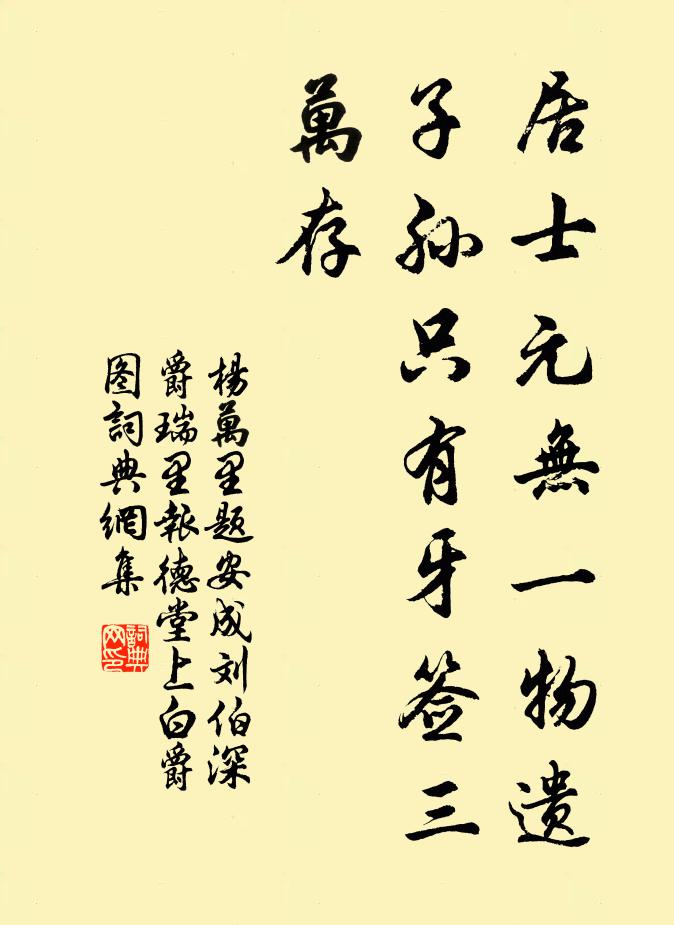 居士元無一物遺
子孫只有牙签三
萬存
楊萬里題安成刘伯深
爵瑞里報德堂上白爵
图詞典網集
詞典
网印